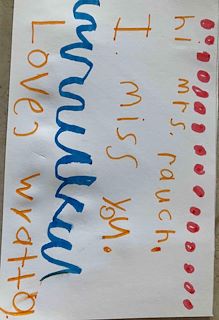 hi mrs. rauch,
I miss you.
Love, wyatt g